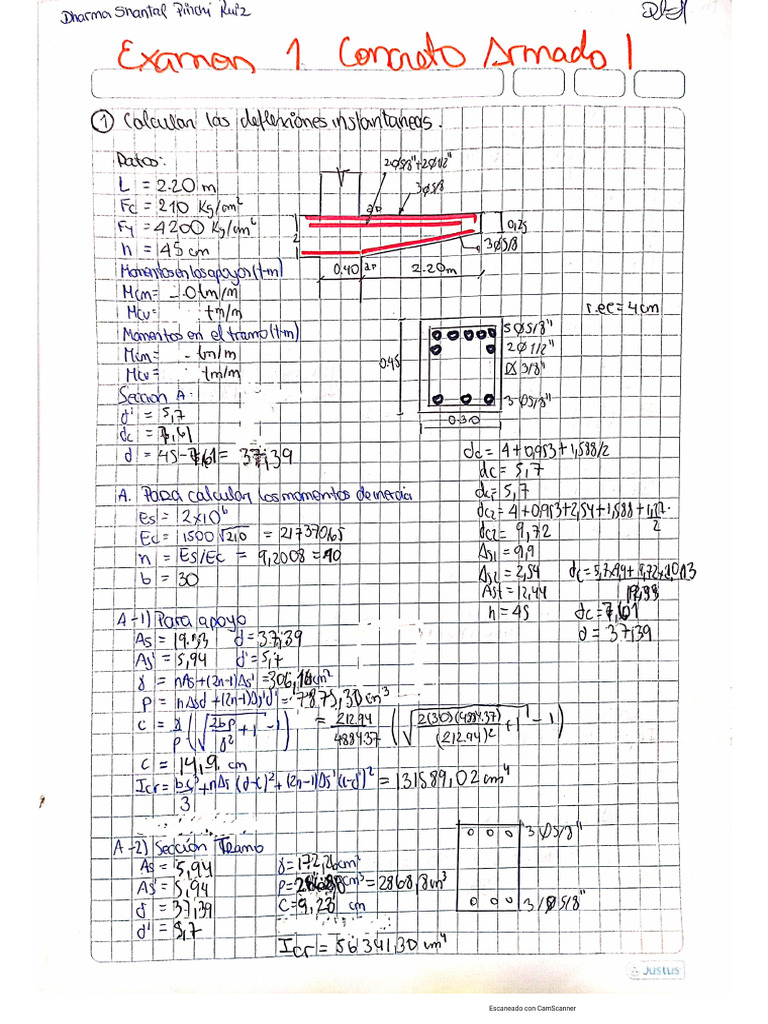 Dharma Shantal Pinchi Ruiz
Examen 1 Concreto Armado I
① Calcular las deflexiones instantaneas.
Datos:
L = 2.20 m
Fc = 210 Kg/cm²
Fy = 4200 Kg/cm²
h = 45 cm
Momentos en los apoyos (t-m)
Mcm= -.0 tm/m
Mcv= tm/m
Momentos en el tramo (t-m)
Mcm= - tm/m
Mcv= tm/m
2Ø5/8"+2Ø1/2"
3Ø5/8
0,25
3Ø5/8
0.40
2.20m
rec=4cm
5Ø5/8"
2Ø1/2"
Ø3/8"
3Ø5/8"
0.45
0.30
Sección A:
d' = 5,7
dc = 7,61
d = 45-7,61 = 37,39
dc = 4+0,953+1,588/2
dc = 5,7
dc1 = 5,7
dc2 = 4+0,953+2,54+1,588+1,27/2
dc2 = 9,72
As1 = 9,9
As2 = 2,54
Ast = 12,44
h = 45
dc=7,61
d = 37,39
A. Para calcular los momentos de inercia
Es = 2x10⁶
Ec = 1500√210 = 217370,65
n = Es/Ec = 9,2008 = 10
b = 30
A-1) Para apoyo
As = 19.33 d = 37,39
As' = 5,94 d' = 5,7
γ = nAs+(2n-1)As' = 306,16cm²
P = nAsd+(2n-1)As'd' = 7875,30cm³
c = γ/P (√(2bp/γ² + 1) - 1) = 212.94/4884.37 (√(2(30)(4884.37)/(212.94)² + 1) - 1)
c = 14,9 cm
Icr = bc³/3 + nAs(d-c)² + (2n-1)As'(c-d')² = 131589,02 cm⁴
A-2) Sección Tramo
As = 5,94
As' = 5,94
d = 37,39
d' = 5,7
γ = 172,26cm²
P = cm³ = 2868,8cm³
c = 9,23 cm
Icr = 56341,30 cm⁴
3Ø5/8"
3Ø5/8"
Justus
Escaneado con CamScanner